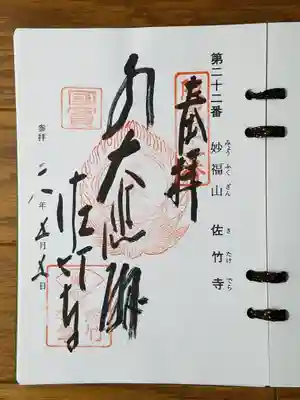 第二十二番 妙福山 佐竹寺
みょうふくざん さたけでら
奉拝
大悲閣
佐竹寺
参拝 二八年五月五日